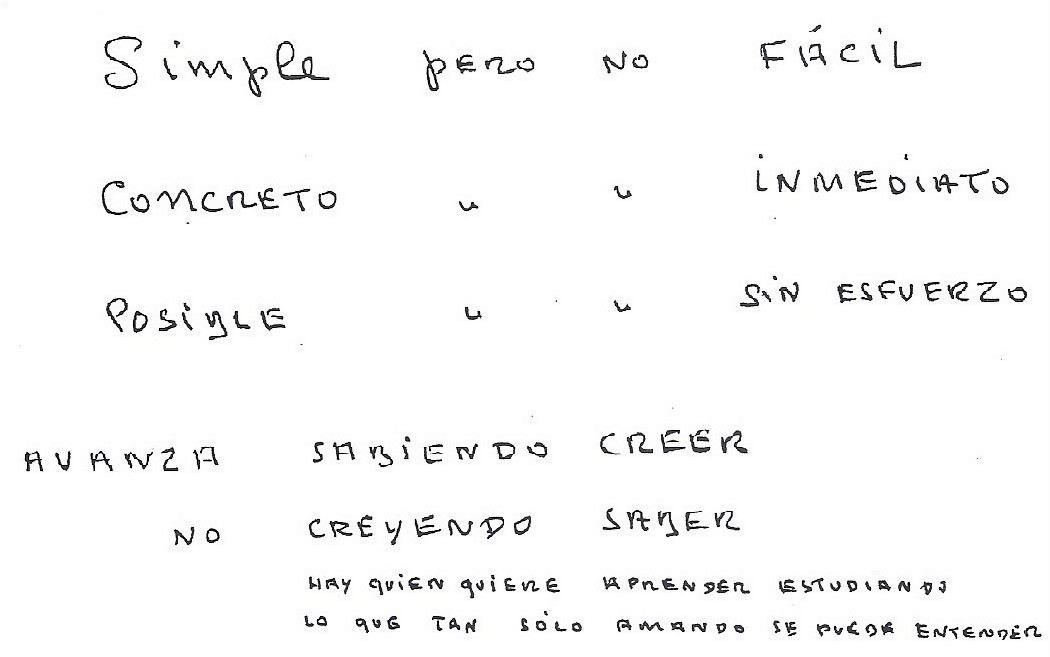 Simple pero no FÁCiL
CONCRETO " " iNMEDiATO
POSiBLE " " SiN ESFUERZO
AVANZA SABiENDO CREER
NO CREYENDO SABER
HAY QUiEN QUiERE APRENDER ESTUDIANDO
LO QUE TAN SÓLO AMANDO SE PUEDE ENTENDER